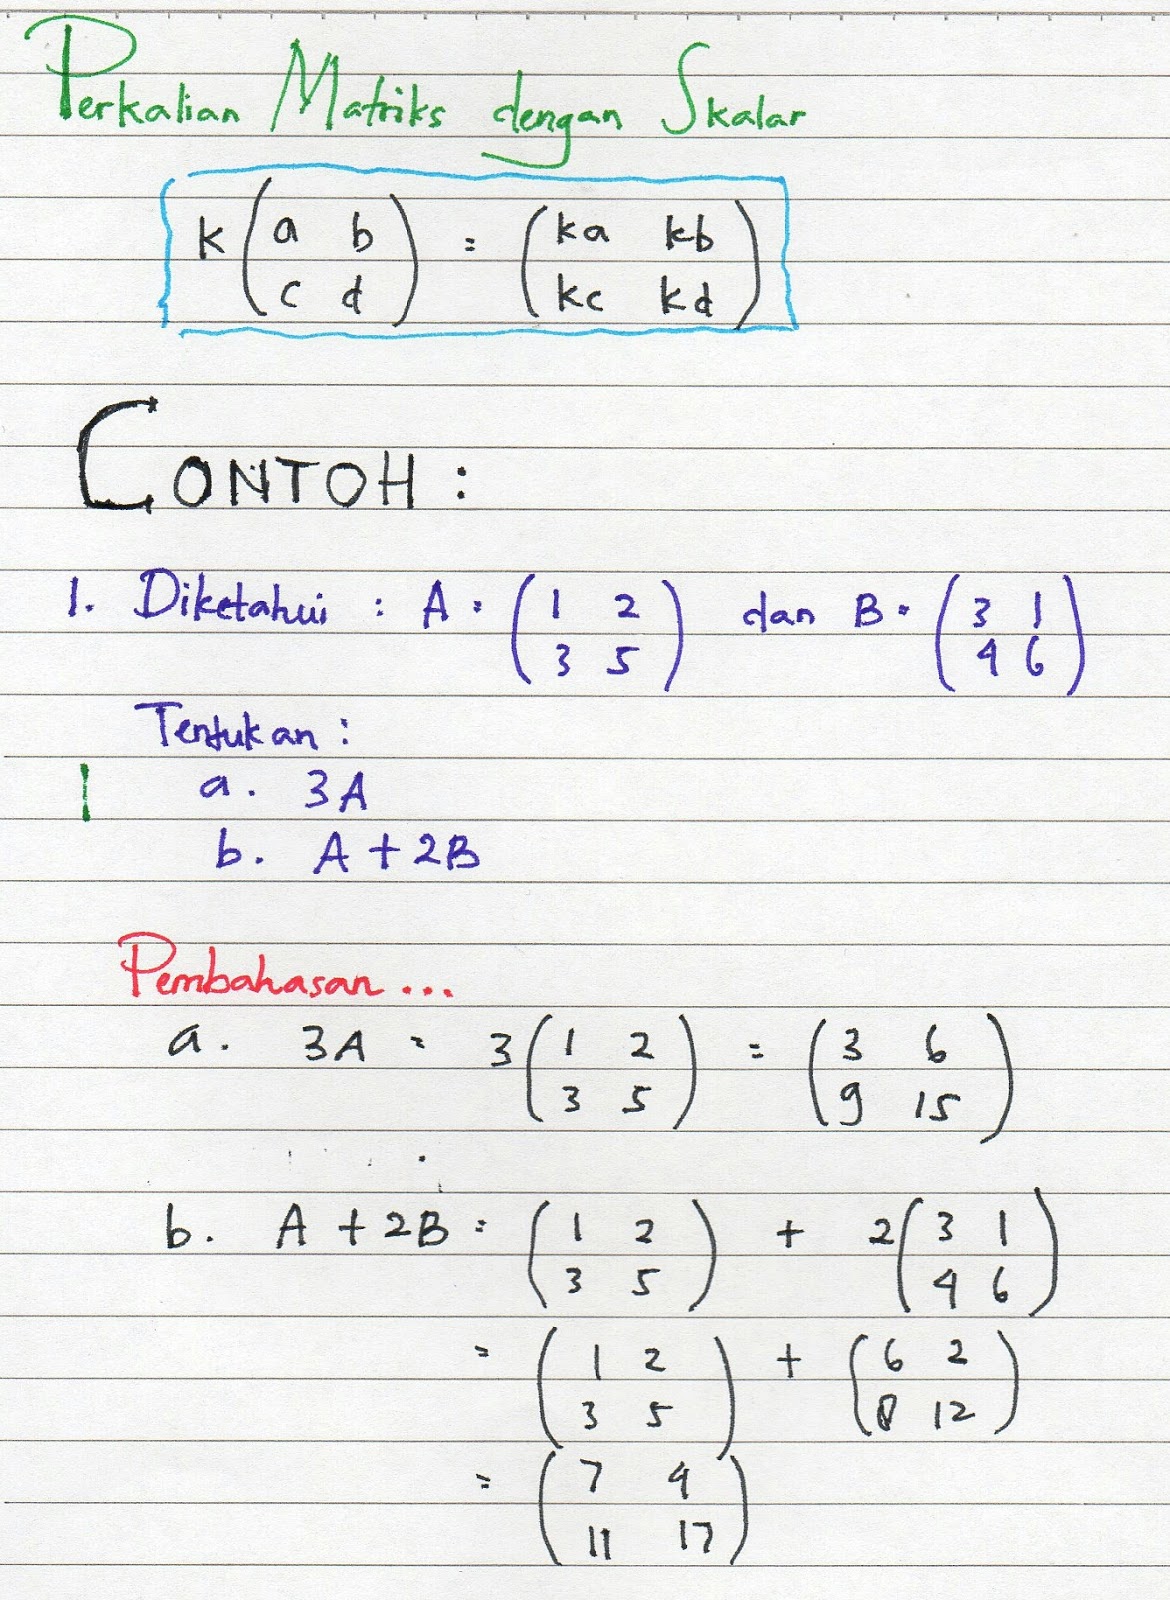 Perkalian Matriks dengan Skalar
k ( a b ) = ( ka kb )
( c d ) ( kc kd )
CONTOH :
1. Diketahui : A = ( 1 2 ) dan B = ( 3 1 )
( 3 5 ) ( 4 6 )
Tentukan :
a. 3A
b. A + 2B
Pembahasan ...
a. 3A = 3 ( 1 2 ) = ( 3 6 )
( 3 5 ) ( 9 15 )
b. A + 2B = ( 1 2 ) + 2 ( 3 1 )
( 3 5 ) ( 4 6 )
= ( 1 2 ) + ( 6 2 )
( 3 5 ) ( 8 12 )
= ( 7 4 )
( 11 17 )